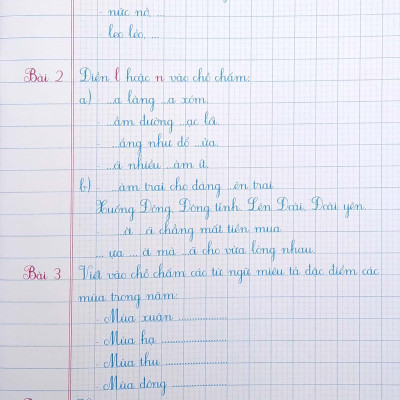 - nức nở, ...
- leo lẻo, ...
Bài 2 Điền l hoặc n vào chỗ chấm:
a) - ...a làng ...a xóm.
- ...ầm đường ...ạc lá.
- ...ắng như đổ ...ửa.
- ...ói nhiều ...àm ít.
b) - ...àm trai cho đáng ...ên trai
Xuống Đông, Đông tĩnh, Lên Đoài, Đoài yên.
- ...ời ...ói chẳng mất tiền mua
...ựa ...ời mà ...ói cho vừa lòng nhau.
Bài 3 Viết vào chỗ chấm các từ ngữ miêu tả đặc điểm các
mùa trong năm:
- Mùa xuân ...................
- Mùa hạ ...................
- Mùa thu ...................
- Mùa đông ...................